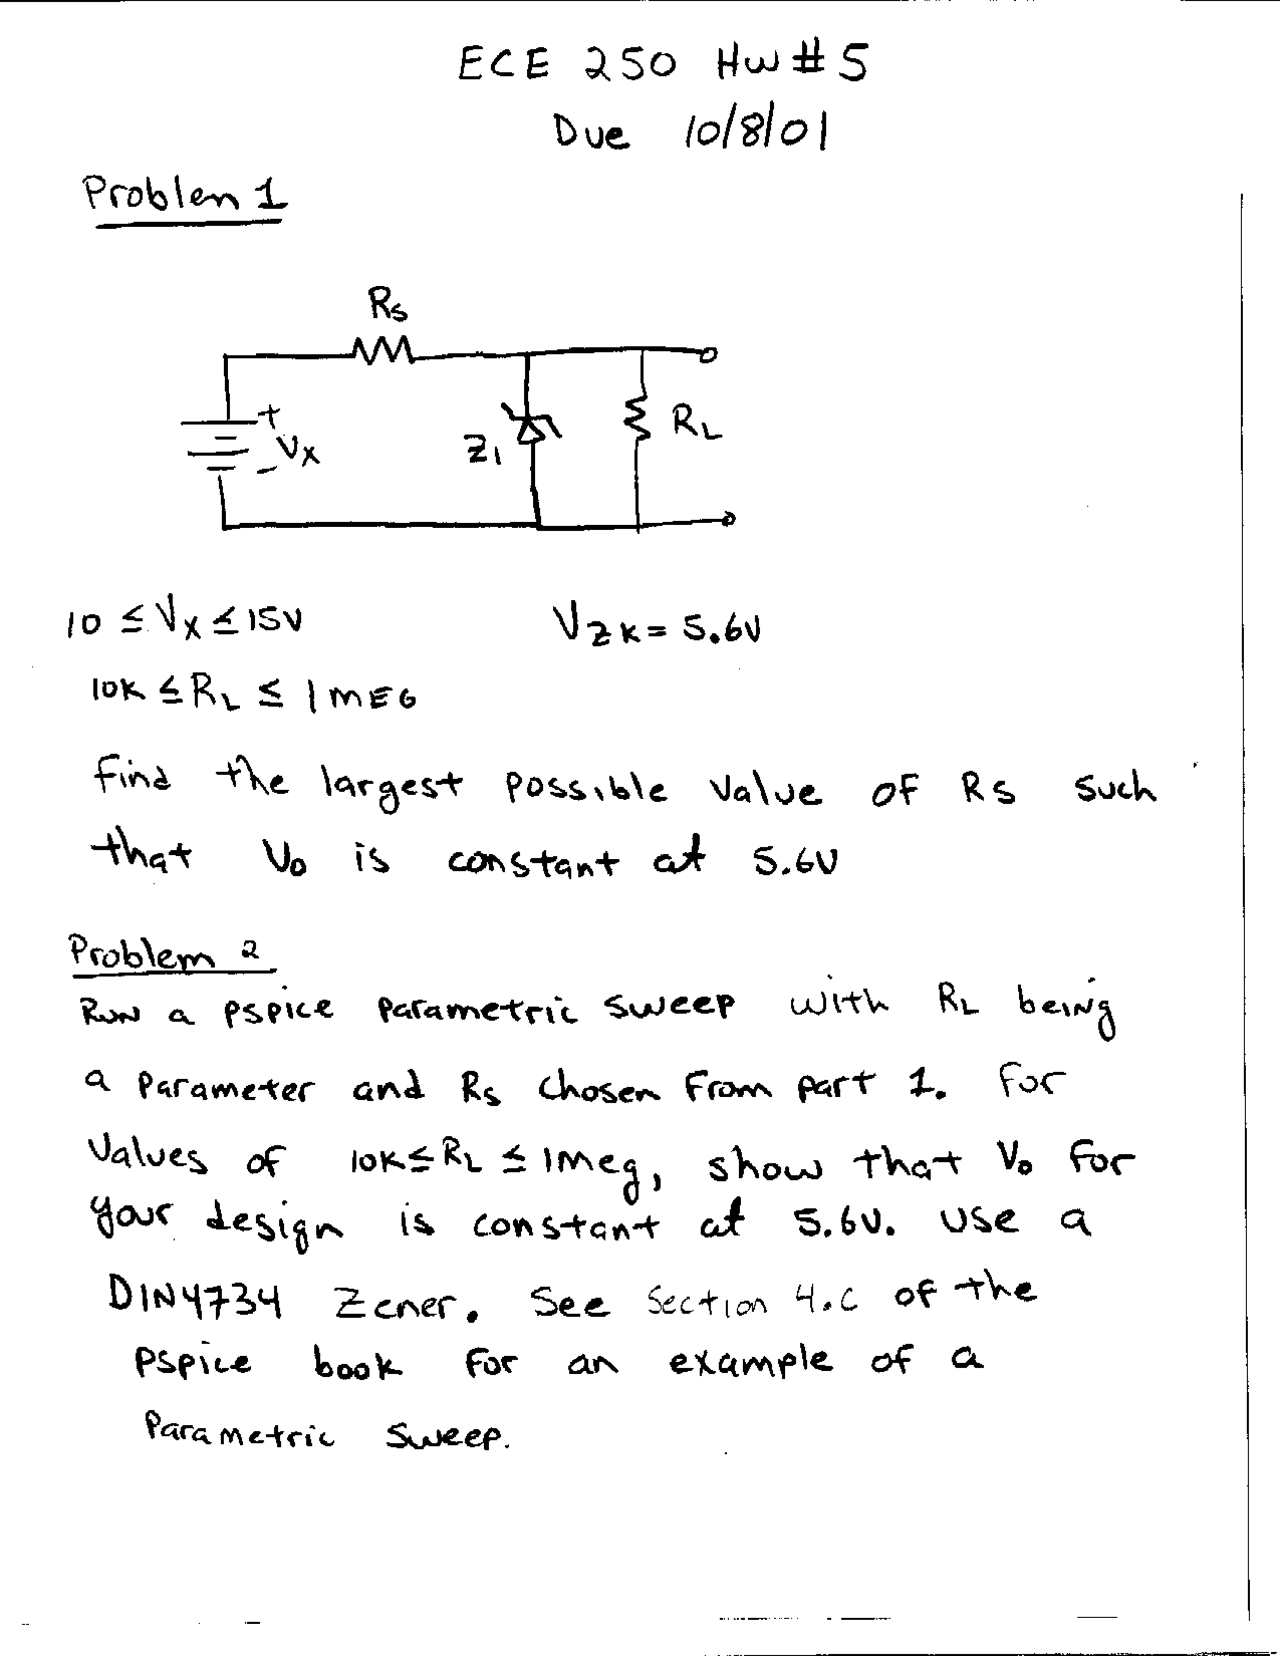 ECE 250 HW#5
Due 10/8/01
Problem 1
Rs
+
Vx
-
Z1
RL
10 ≤ Vx ≤ 15V
VZK = 5.6V
10K ≤ RL ≤ 1MEG
find the largest possible value of Rs such
that Vo is constant at 5.6V
Problem 2
Run a pspice parametric sweep with RL being
a parameter and Rs chosen from part 1. For
values of 10K ≤ RL ≤ 1Meg, show that Vo for
your design is constant at 5.6V. Use a
D1N4734 Zener. See Section 4.C of the
pspice book for an example of a
Parametric sweep.